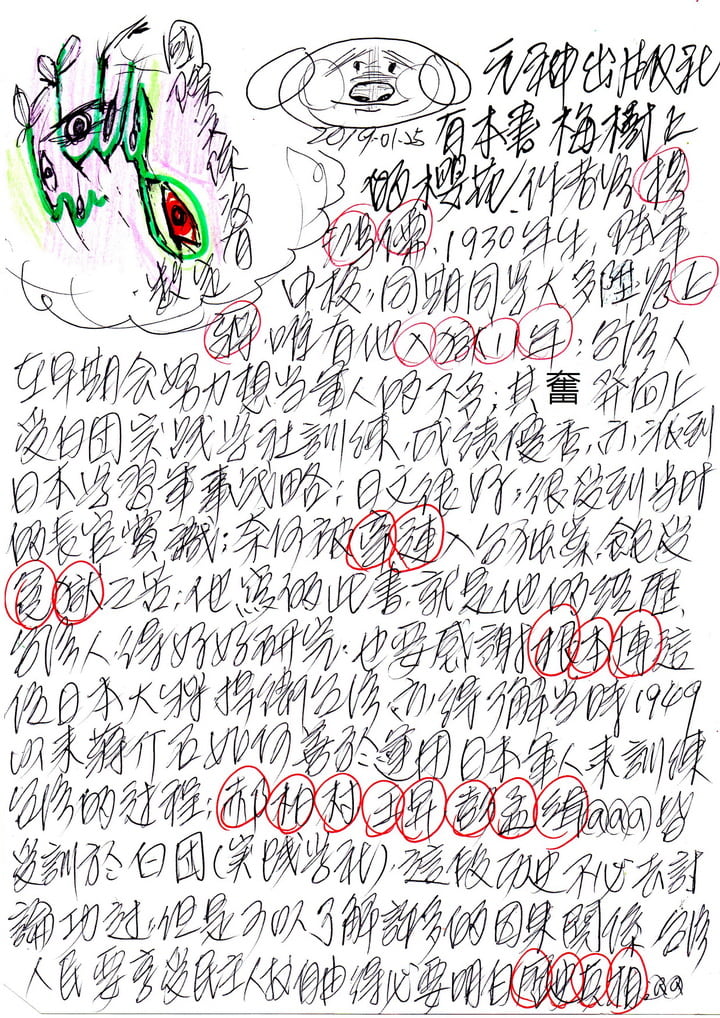 元神出版社
2019-01-25 有本書梅樹上
的櫻花,作者為
1930年生,陸軍
中校,同期同學大多陞為上
將唯有他入獄11年;台灣人
在早期會努力想當軍人的不多;其奮發向上
受白團實踐學社訓練,成績優秀,亦派到
日本學習軍事戰略;日文很好;很受到當時
的長官賞識;奈何被牽連入台獨案,飽受
冤獄之苦;他寫的此書,就是他的經歷,
台灣人得好好研究;也要感謝根本博這
位日本大將捍衛台灣,亦得了解當時1949
以來蔣介石如何善於運用日本軍人來訓練
台灣的過程;郝柏村王昇彭孟緝@@@皆
受訓於白團(實踐學社),這段历史不必去討
論功过,但是可以了解許多的因果關係,台灣
人民要享受民主人权自由得必要明白真相,@@